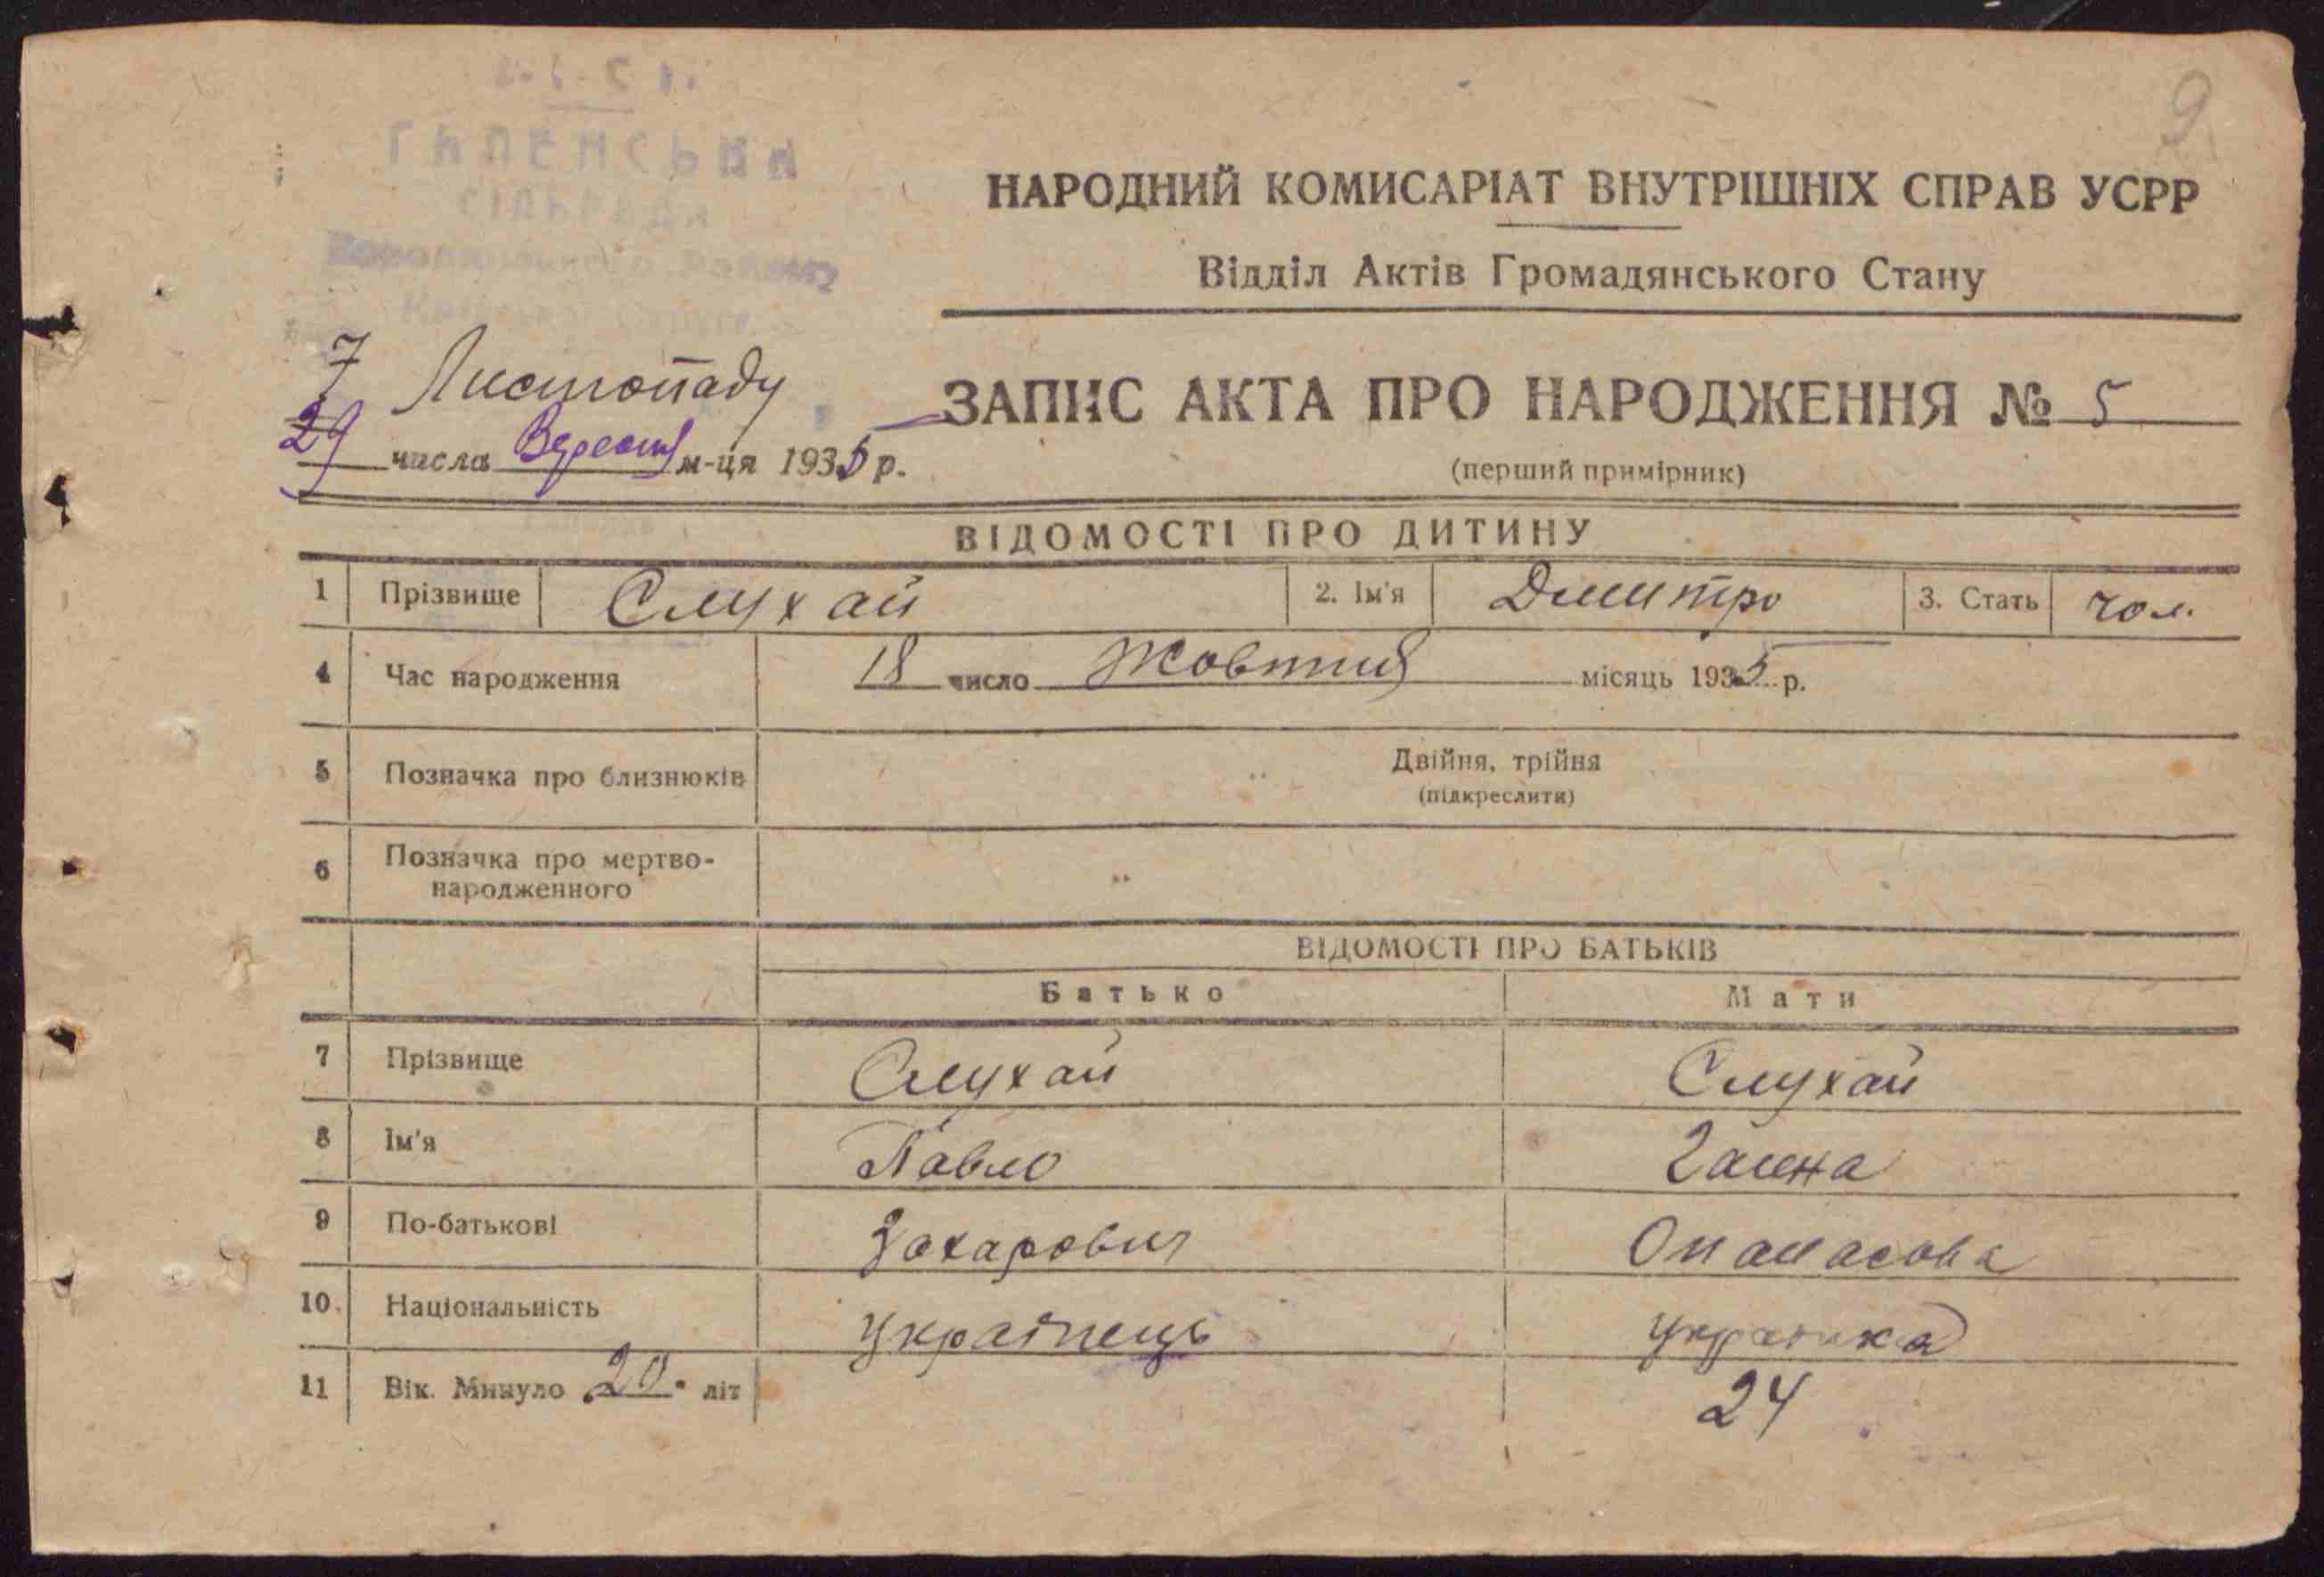 9
СІЛЬРАДА
НАРОДНИЙ КОМИСАРІАТ ВНУТРІШНІХ СПРАВ УСРР
Відділ Актів Громадянського Стану
7 Листопаду
29 числа Вересня м-ця 1935 р.
ЗАПИС АКТА ПРО НАРОДЖЕННЯ № 5
(перший примірник)
ВІДОМОСТІ ПРО ДИТИНУ
1 Прізвище Слухай 2. Ім'я Дмитро 3. Стать чол.
4 Час народження 18 число Жовтня місяць 1935 р.
5 Позначка про близнюків Двійня, трійня
(підкреслити)
6 Позначка про мертво-
народженного
ВІДОМОСТІ ПРО БАТЬКІВ
Батько Мати
7 Прізвище Слухай Слухай
8 Ім'я Павло Ганна
9 По-батькові Захарович Опанасова
10. Національність Українець Українка
11 Вік. Минуло 20 літ 24